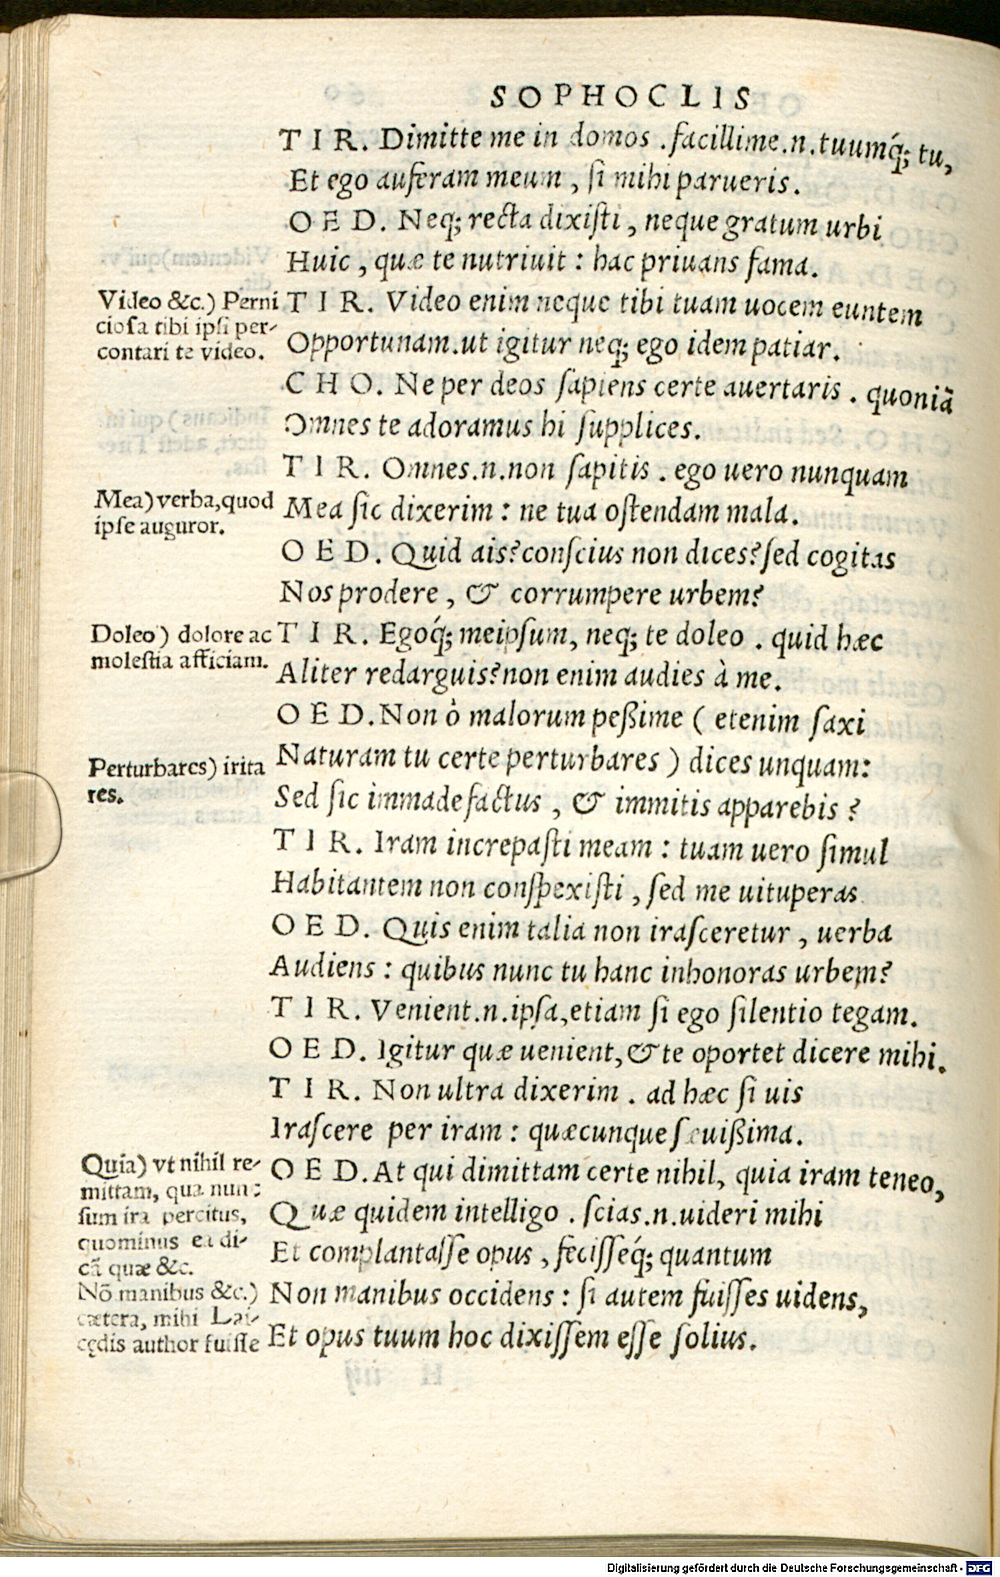 SOPHOCLIS
T I R. Dimitte me in domos .facillime.n.tuumq́; tu,
Et ego auferam meum , si mihi parueris.
O E D. Neq; recta dixisti , neque gratum urbi
Huic , quæ te nutriuit : hac priuans fama.
T I R. Video enim neque tibi tuam uocem euntem
Opportunam.ut igitur neq; ego idem patiar.
C H O. Ne per deos sapiens certe auertaris . quoniã
Omnes te adoramus hi supplices.
T I R. Omnes.n.non sapitis . ego uero nunquam
Mea sic dixerim : ne tua ostendam mala.
O E D. Quid ais? conscius non dices? sed cogitas
Nos prodere , & corrumpere urbem?
T I R. Egoq́; meipsum, neq; te doleo . quid hæc
Aliter redarguis? non enim audies à me.
O E D. Non ò malorum peßime ( etenim saxi
Naturam tu certe perturbares ) dices unquam:
Sed sic immadefactus , & immitis apparebis ?
T I R. Iram increpasti meam : tuam uero simul
Habitantem non conspexisti , sed me uituperas
O E D. Quis enim talia non irasceretur , uerba
Audiens : quibus nunc tu hanc inhonoras urbem?
T I R. Venient.n.ipsa,etiam si ego silentio tegam.
O E D. Igitur quæ uenient,& te oportet dicere mihi.
T I R. Non ultra dixerim . ad hæc si uis
Irascere per iram : quæcunque sæuißima.
O E D. At qui dimittam certe nihil, quia iram teneo,
Quæ quidem intelligo . scias.n.uideri mihi
Et complantasse opus , fecisseq́; quantum
Non manibus occidens : si autem fuisses uidens,
Et opus tuum hoc dixissem esse solius.
Video &c.) Perni
ciosa tibi ipsi per-
contari te video.
Mea) verba,quod
ipse auguror.
Doleo) dolore ac
molestia afficiam.
Perturbares) irita
res.
Quia) vt nihil re-
mittam, qua nunc
sum ira percitus,
quominus ea di-
cã quæ &c.
Nõ manibus &c.)
cætera, mihi Lai-
cędis author fuisse
Digitalisierung gefördert durch die Deutsche Forschungsgemeinschaft - DFG